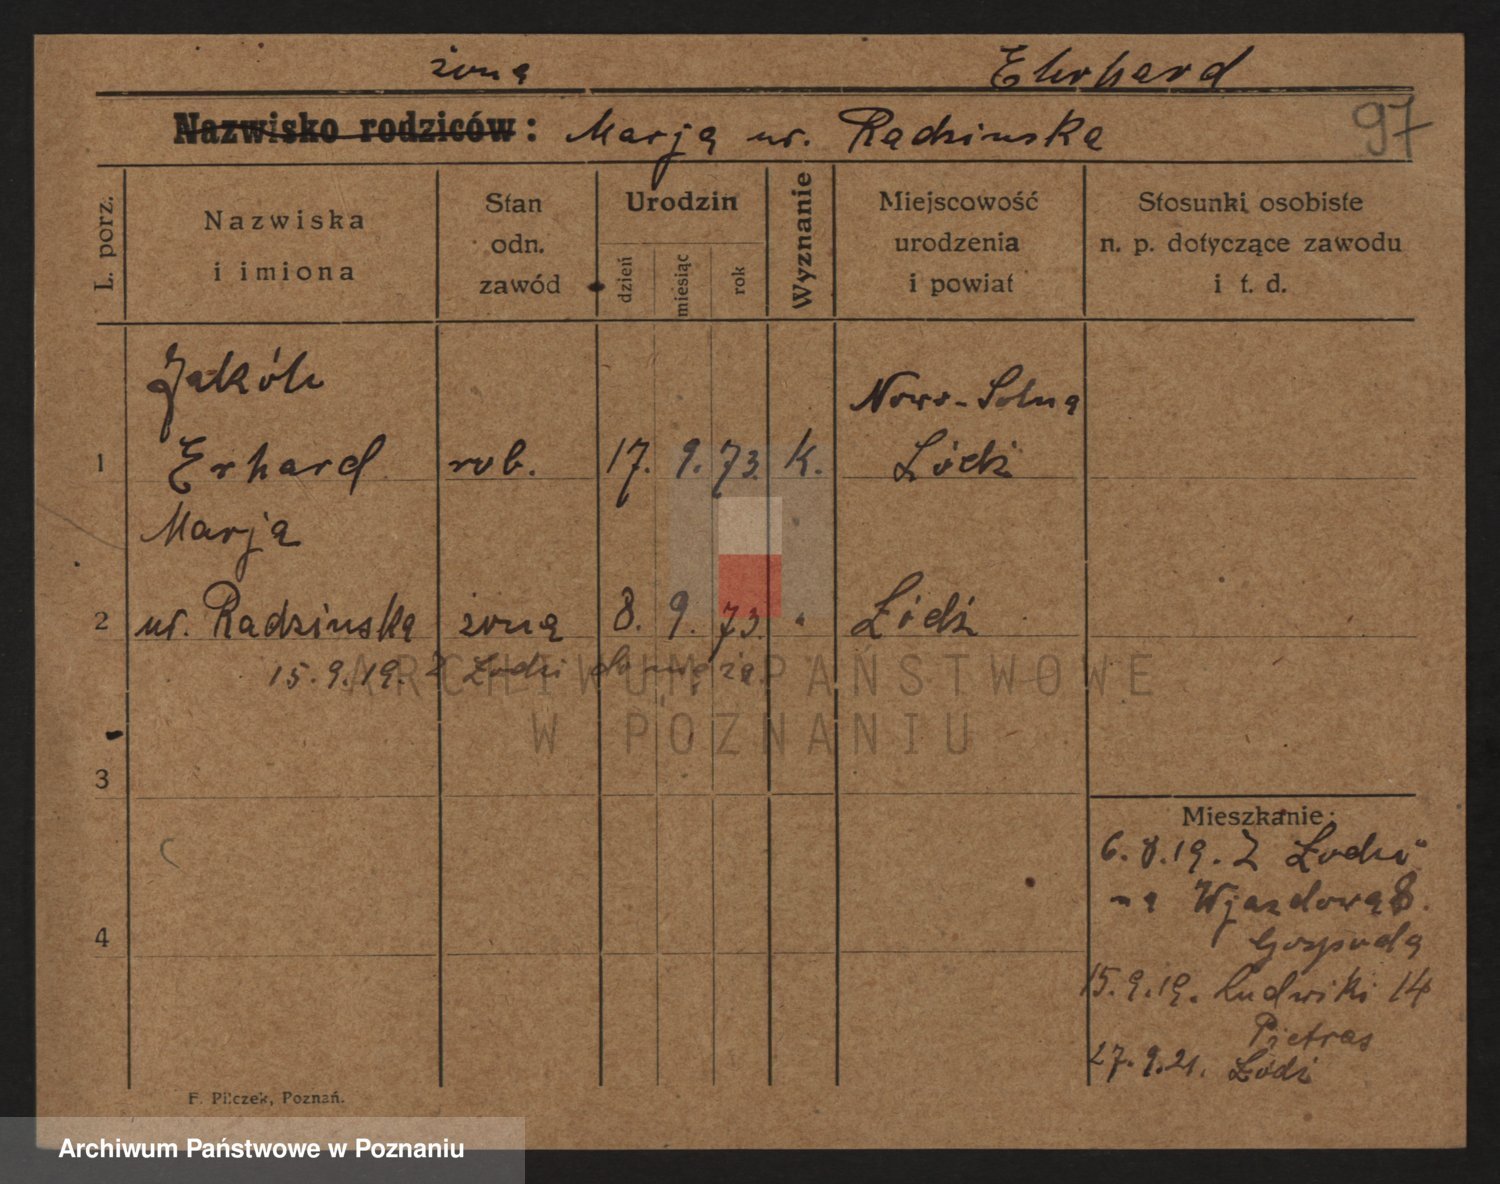 żona Ehrhard
Nazwisko rodziców: Marja ur. Radzinska
97
L. porz.
Nazwiska
i imiona
Stan
odn.
zawód
Urodzin
dzień
miesiąc
rok
Wyznanie
Miejscowość
urodzenia
i powiat
Stosunki osobiste
n. p. dotyczące zawodu
i t. d.
Jakób
Nowo-Solna
1 Erhard rob. 17. 9. 73. k. Łódź
Marja
2 ur. Radzinska żona 8. 9. 73. " Łódź
15.9.19. Z Łodzi do męża.
3
4
Mieszkanie:
6.8.19. Z Łodzi
na Wjazdowa 8.
Gospoda
15.9.19. Ludwiki 14
Pietras
27.9.21. Łódź
F. Pilczek, Poznań.
ARCHIWUM PAŃSTWOWE
W POZNANIU
Archiwum Państwowe w Poznaniu